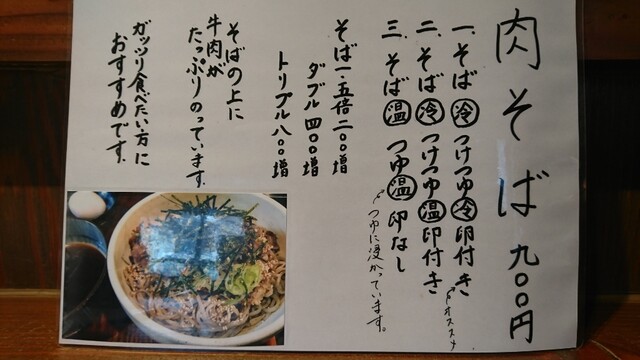 肉そば 九〇〇円
一、そば㊀冷 つけつゆ冷 卵付き
↑オススメ
二、そば冷 つけつゆ温 卵付き
三、そば温 つゆ温 卵なし
↑つゆに浸かっています。
そば一.五倍 二〇〇増
ダブル 四〇〇増
トリプル 八〇〇増
そばの上に
牛肉が
たっぷりのっています。
ガッツリ食べたい方に
おすすめです。